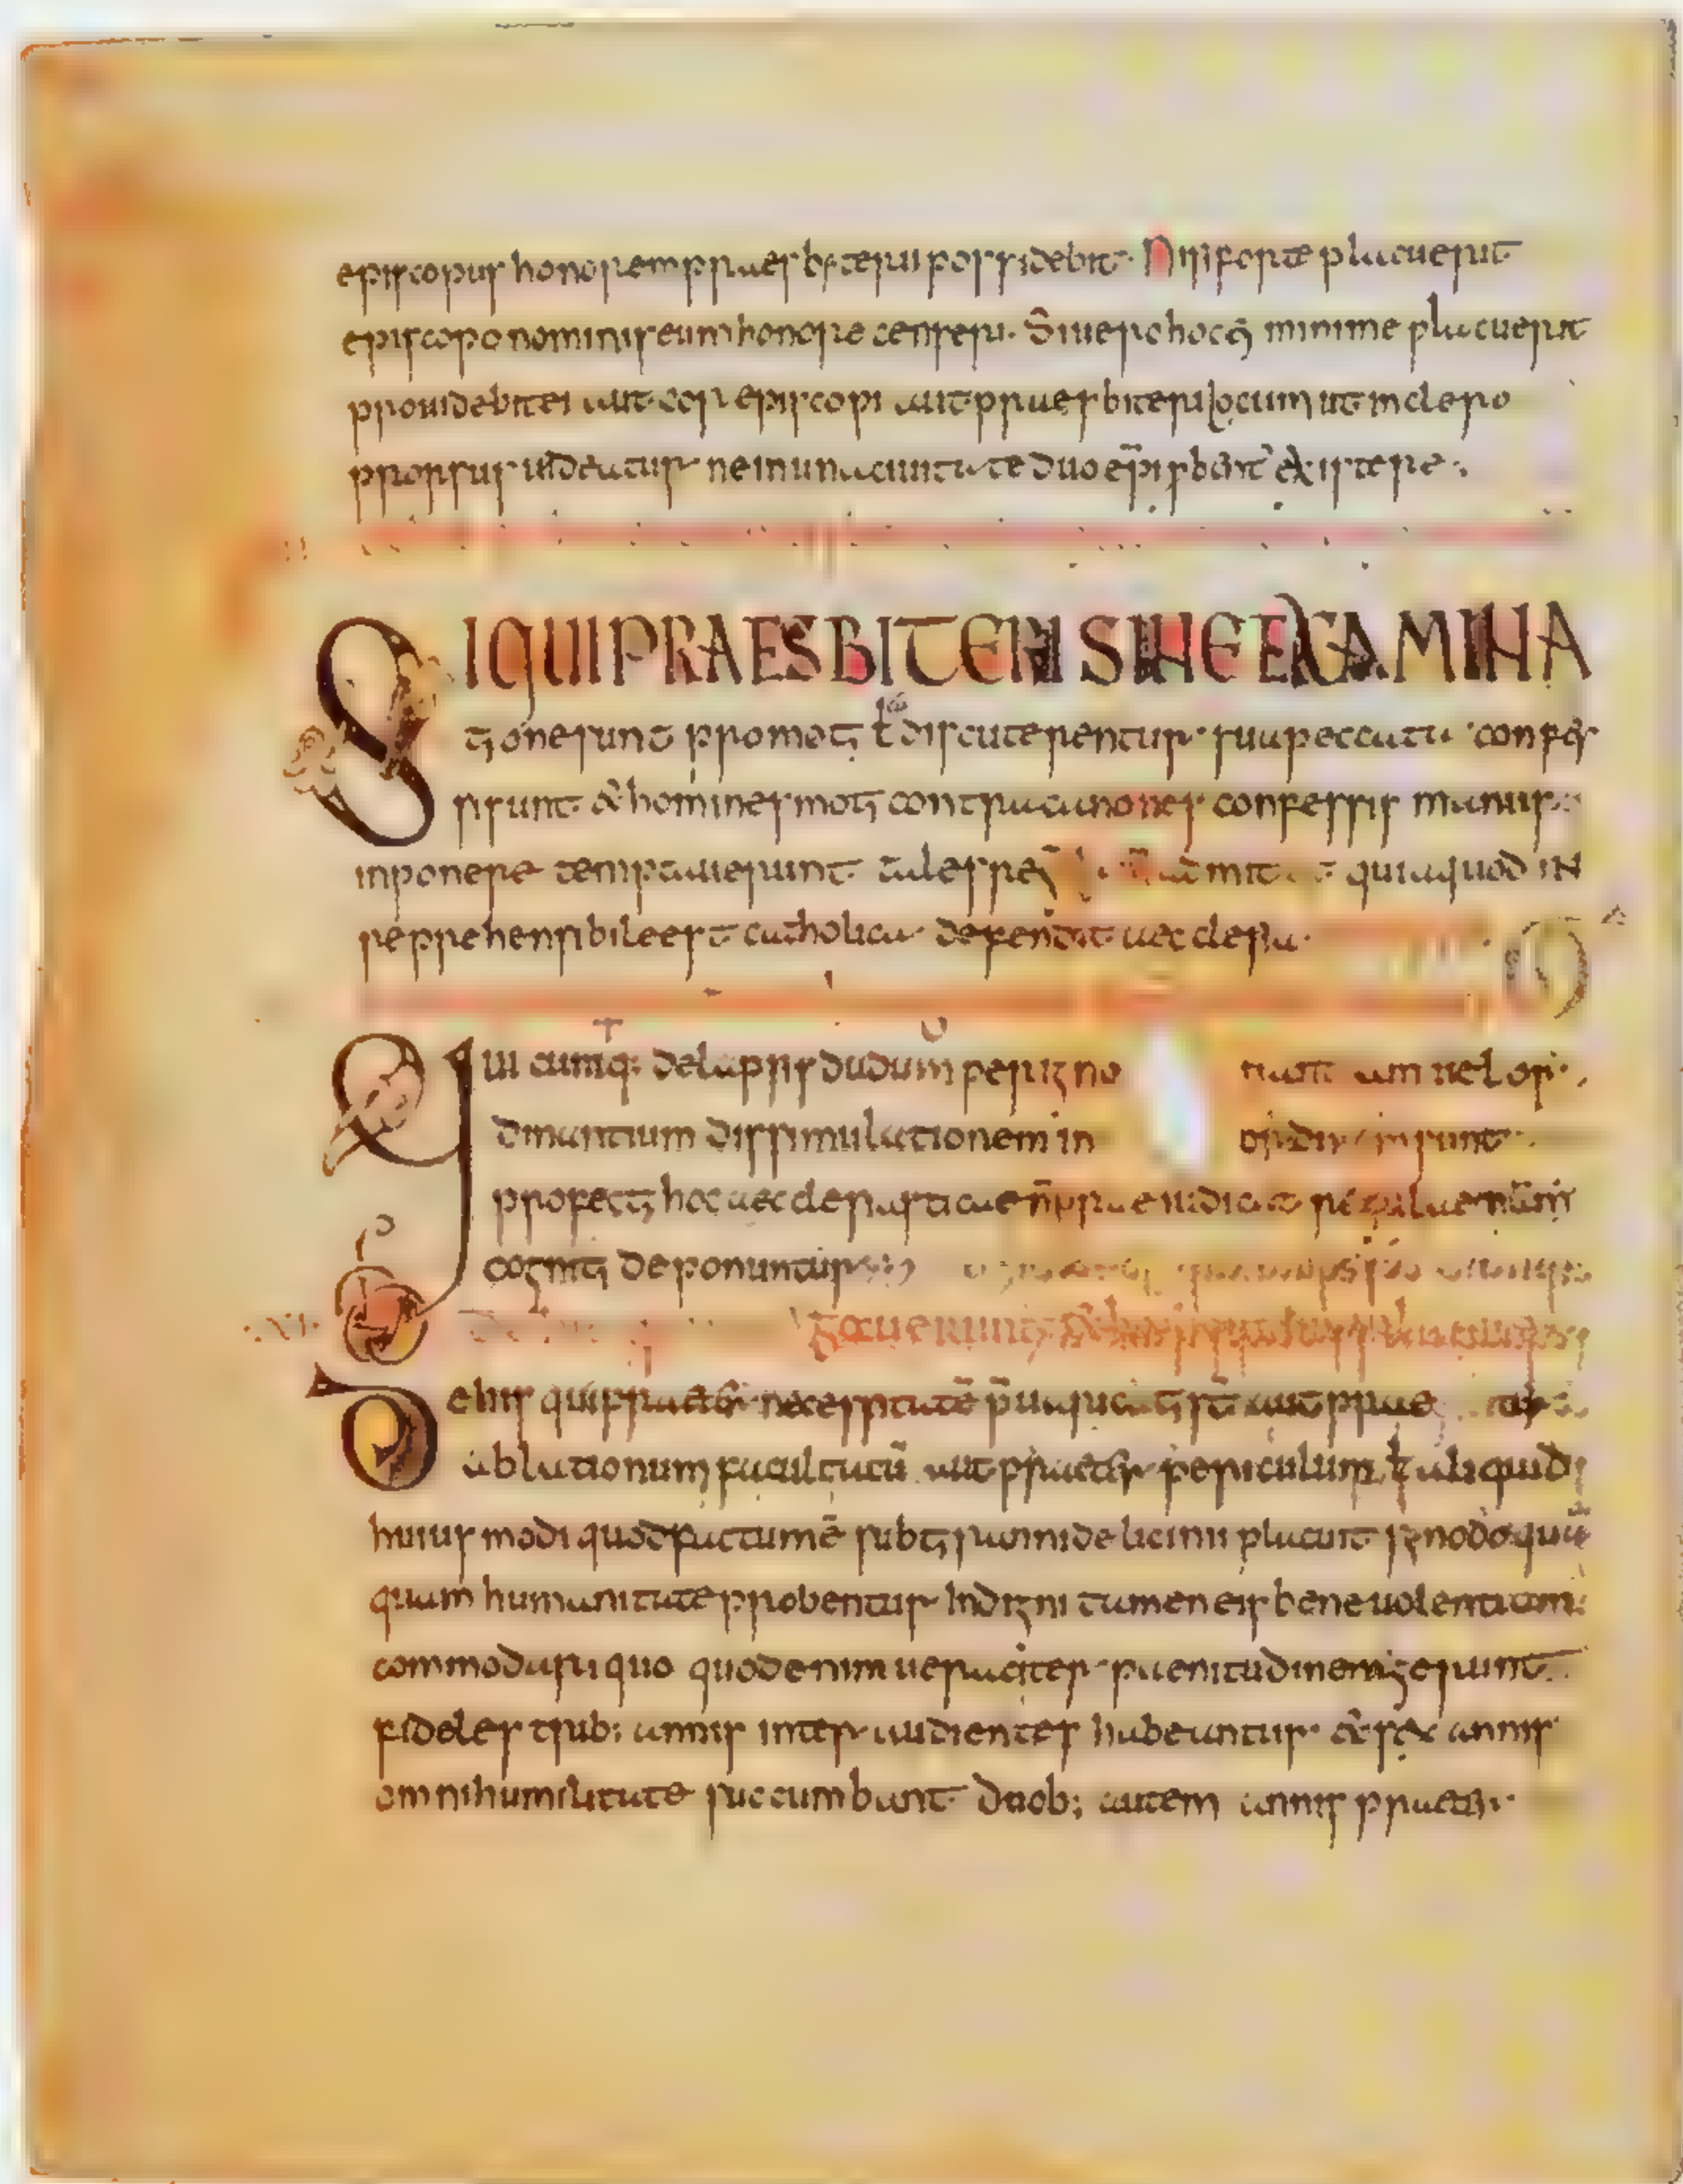 episcopus honorem praesbiterii possidebit· Nisi forte placuerit
episcopo nominis eum honore censeri· Si uero hoc ei minime placuerit
prouidebit ei aut cor episcopi aut praesbiteri locum ut in clero
prorsus uideatur ne in una ciuitate duo epis· existere·
SI QUI PRAESBITERI SINE EXAMINA
tione sunt promoti ł dū discuterentur sua peccata confes
si sunt & homines moti contra canones confessis manus
inponere temptauerunt tales quia quod in
reprehensibile est catholica defendit aecclesia·
Qui cumq: de lapsis dudum per igno uel or
dinantium dissimulationem in sunt
profecto hoc aecclesiasticae n̄ praeiudicat
cogniti deponuntur
De his qui praeter necessitatē p̄uaricati st̄ aut
ablationum facultatū aut praeter periculum ł aliquid
huius modi quod factum ē sub tirannide licinii placuit synodo quā
quam humanitate probentur Indigni tamen eis beneuolentiam
commodari quo quod enim ueraciter paenitudinem gerunt
fideles trib: annis inter audientes habeantur & sex annis
omni humilitate succumbant Duob; autem annis praeter